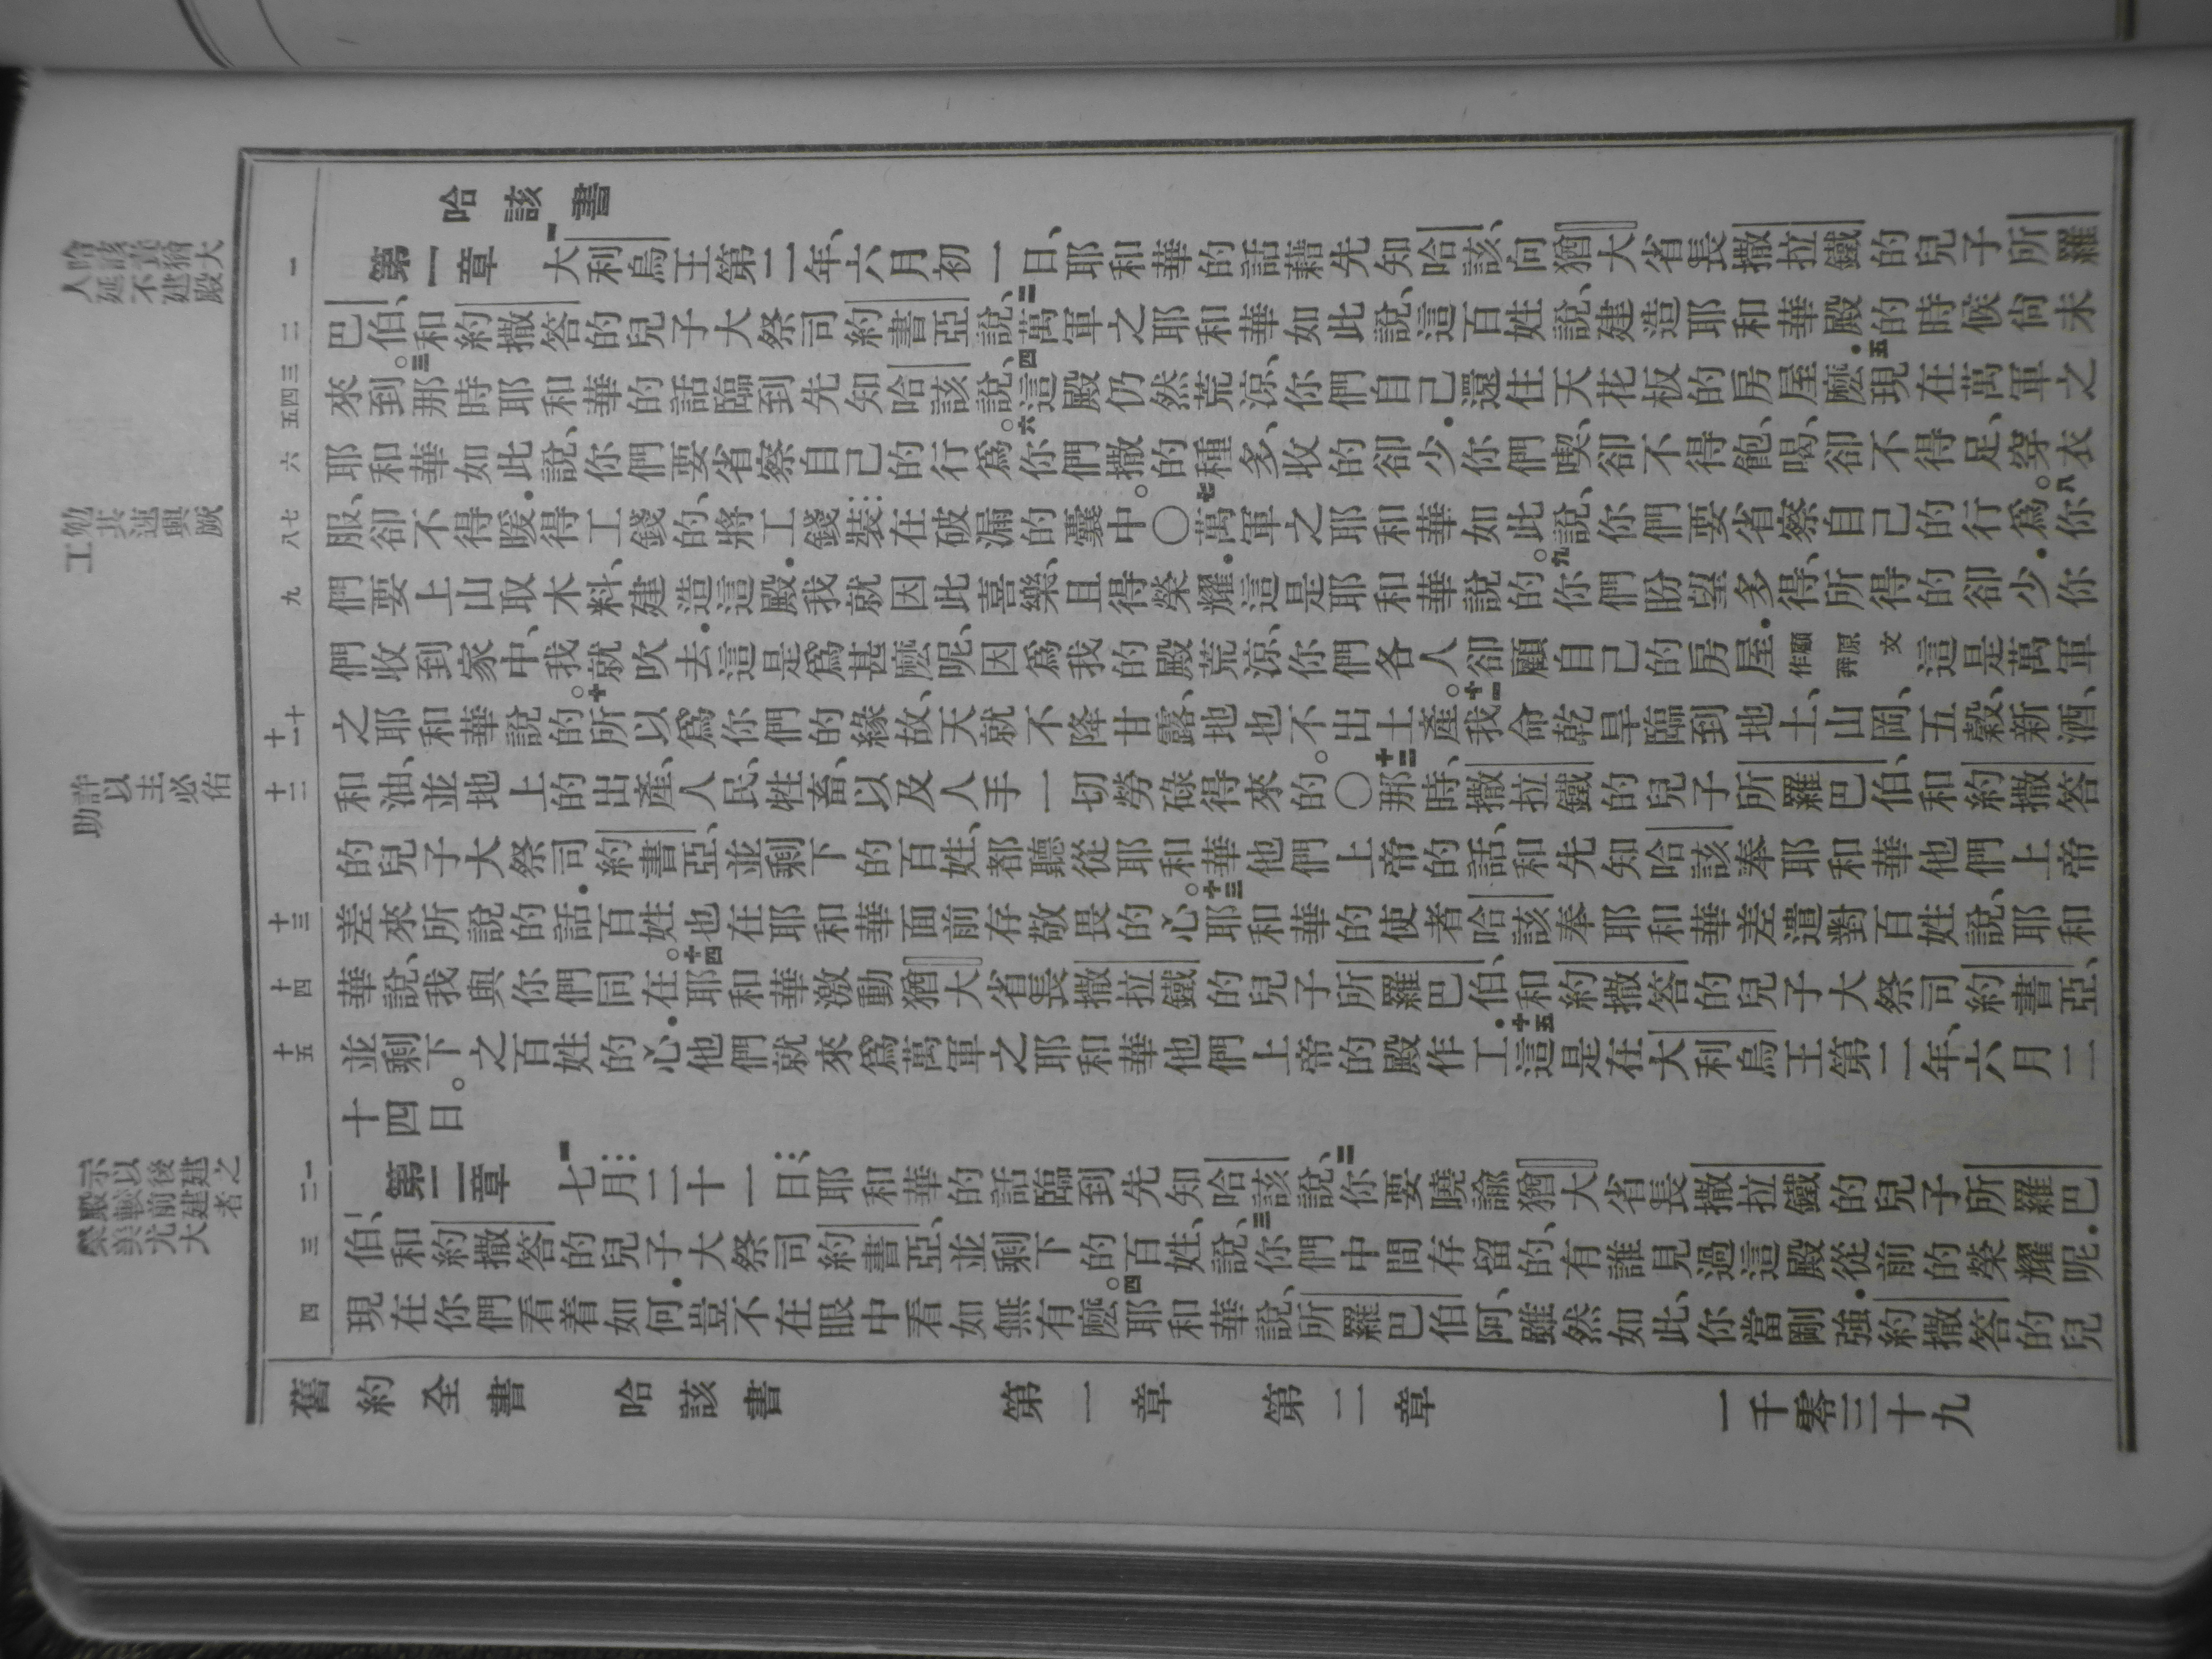 哈該書
第一章 一大利烏王第二年、六月初一日、耶和華的話藉先知哈該、向猶大省長撒拉鐵的兒子所羅
巴伯、和約撒答的兒子大祭司約書亞說、二萬軍之耶和華如此說、這百姓說、建造耶和華殿的時候尚未
來到。三那時耶和華的話臨到先知哈該說、四這殿仍然荒涼、你們自己還住天花板的房屋麼．五現在萬軍之
耶和華如此說、你們要省察自己的行爲。六你們撒的種多、收的卻少．你們喫、卻不得飽、喝、卻不得足、穿衣
服、卻不得暖．得工錢的、將工錢裝在破漏的囊中。〇七萬軍之耶和華如此說、你們要省察自己的行爲。八你
們要上山取木料、建造這殿．我就因此喜樂、且得榮耀．這是耶和華說的。九你們盼望多得、所得的卻少．你
們收到家中、我就吹去．這是爲甚麼呢、因爲我的殿荒涼、你們各人卻顧自己的房屋．顧原文作奔 這是萬軍
之耶和華說的。十所以爲你們的緣故、天就不降甘露、地也不出土產。十一我命乾旱臨到地土、山岡、五穀、新酒、
和油、並地上的出產、人民、牲畜、以及人手一切勞碌得來的。〇十二那時、撒拉鐵的兒子所羅巴伯、和約撒答
的兒子大祭司約書亞、並剩下的百姓、都聽從耶和華他們上帝的話、和先知哈該奉耶和華他們上帝
差來所說的話．百姓也在耶和華面前存敬畏的心。十三耶和華的使者哈該、奉耶和華差遣對百姓說、耶和
華說、我與你們同在。十四耶和華激動猶大省長撒拉鐵的兒子所羅巴伯、和約撒答的兒子大祭司約書亞、
並剩下之百姓的心．他們就來爲萬軍之耶和華他們上帝的殿作工．十五這是在大利烏王第二年、六月二
十四日。
第二章 一七月二十一日、耶和華的話臨到先知哈該說、二你要曉諭猶大省長撒拉鐵的兒子所羅巴
伯、和約撒答的兒子大祭司約書亞、並剩下的百姓、說、三你們中間存留的、有誰見過這殿從前的榮耀呢．
現在你們看着如何．豈不在眼中看如無有麼。四耶和華說、所羅巴伯阿、雖然如此、你當剛強．約撒答的兒
舊約全書 哈該書 第一章 第二章 一千零三十九
一
二
三
四
五
六
七
八
九
十
十一
十二
十三
十四
十五
一
二
三
四